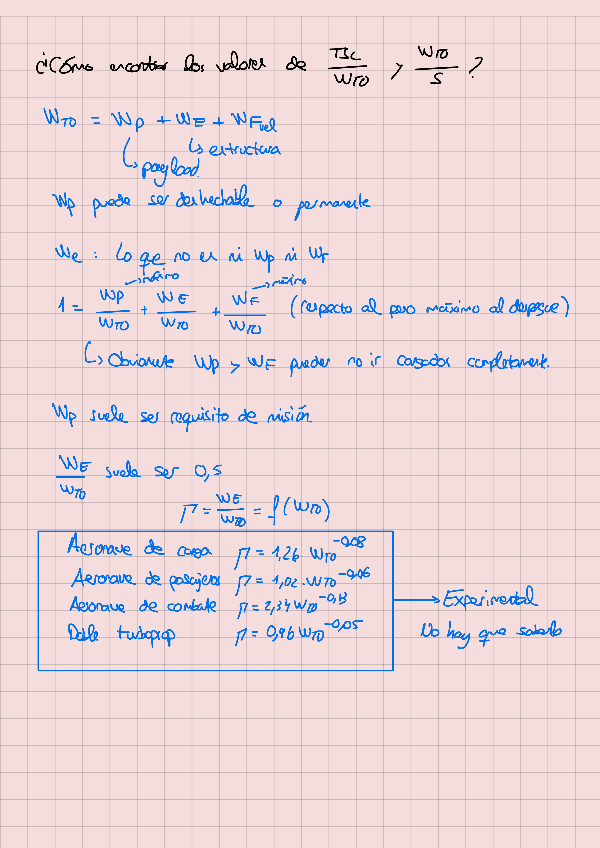 ¿Cómo encontrar los valores de TSL/WTO y WTO/S ?
WTO = Wp + WE + WFuel
↳ estructura
↳ payload
Wp puede ser deshechable o permanente
We : Lo que no es ni Wp ni WF
→ máximo → máximo
1 = WP/WTO + WE/WTO + WF/WTO (respecto al peso máximo al despegue)
↳ Obviamente Wp y WF pueden no ir cargados completamente.
Wp suele ser requisito de misión
WE/WTO suele ser 0,5
Γ = WE/WTO = f(WTO)
Aeronave de carga Γ = 1,26 WTO^-0,08
Aeronave de pasajeros Γ = 1,02 · WTO^-0,06
Aeronave de combate Γ = 2,34 WTO^-0,13 → Experimental
Doble turboprop Γ = 0,96 WTO^-0,05 No hay que saberlo